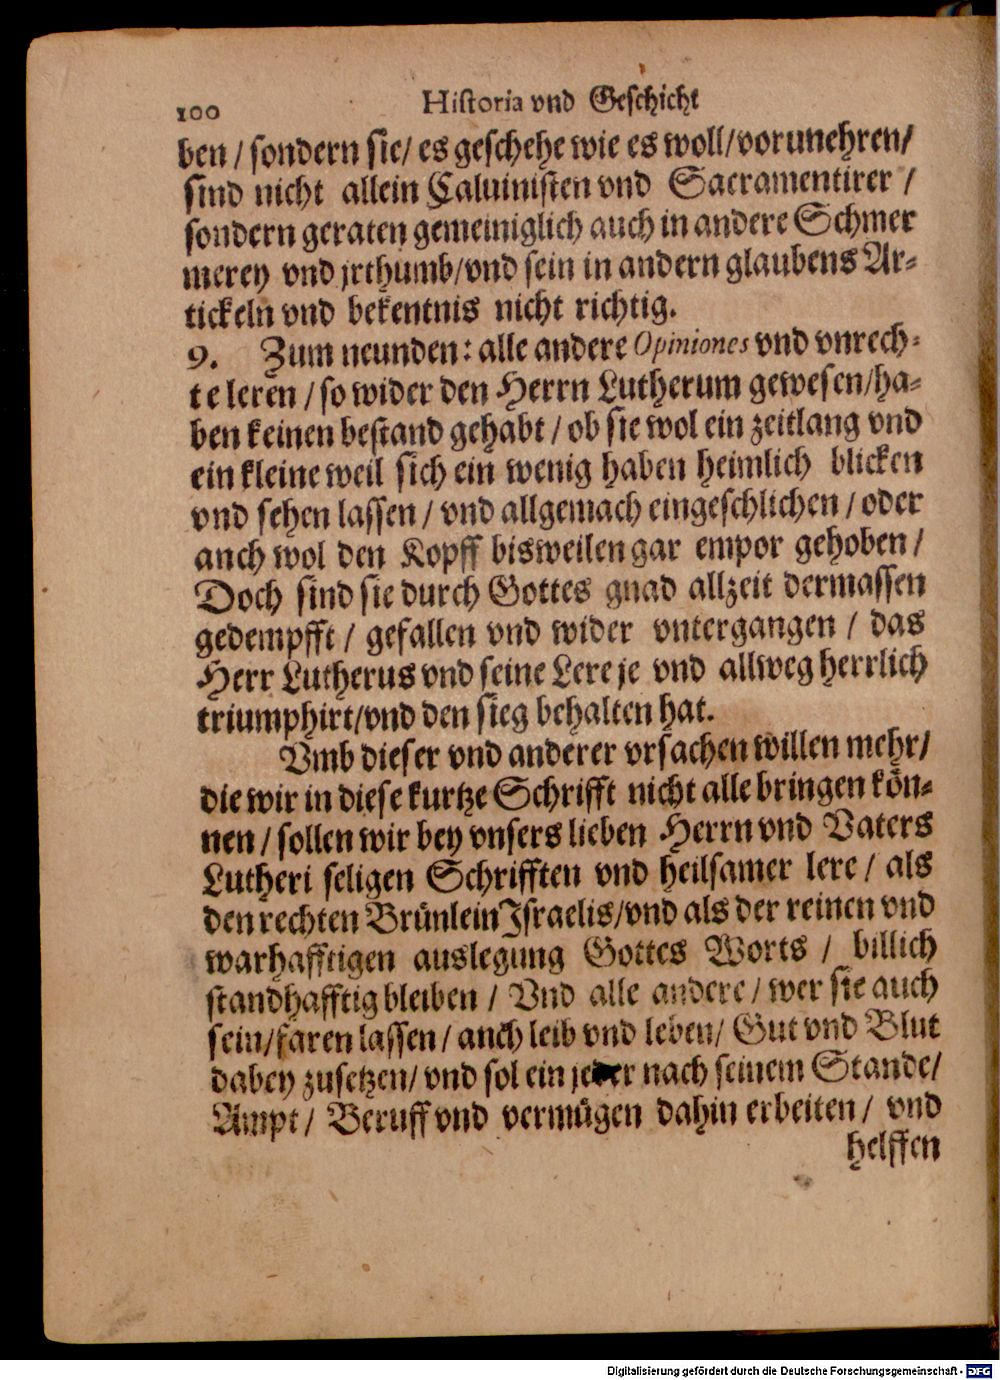 100 Historia vnd Geschicht
ben / sondern sie/ es geschehe wie es woll/vorunehren/
sind nicht allein Caluinisten vnd Sacramentirer /
sondern geraten gemeiniglich auch in andere Schmer
merey vnd jrthumb/vnd sein in andern glaubens Ar-
tickeln vnd bekentnis nicht richtig.
9. Zum neunden: alle andere Opiniones vnd vnrech-
te leren / so wider den Herrn Lutherum gewesen/ha-
ben keinen bestand gehabt / ob sie wol ein zeitlang vnd
ein kleine weil sich ein wenig haben heimlich blicken
vnd sehen lassen / vnd allgemach eingeschlichen / oder
anch wol den Kopff bisweilen gar empor gehoben /
Doch sind sie durch Gottes gnad allzeit dermassen
gedempfft / gefallen vnd wider vntergangen / das
Herr Lutherus vnd seine Lere je vnd allweg herrlich
triumphirt/vnd den sieg behalten hat.
Vmb dieser vnd anderer vrsachen willen mehr/
die wir in diese kurtze Schrifft nicht alle bringen kön-
nen / sollen wir bey vnsers lieben Herrn vnd Vaters
Lutheri seligen Schrifften vnd heilsamer lere / als
den rechten Brünlein Israelis/vnd als der reinen vnd
warhafftigen auslegung Gottes Worts / billich
standhafftig bleiben / Vnd alle andere / wer sie auch
sein/faren lassen / anch leib vnd leben/ Gut vnd Blut
dabey zusetzen/ vnd sol ein jeder nach seinem Stande/
Ampt / Beruff vnd vermügen dahin erbeiten / vnd
helffen
Digitalisierung gefördert durch die Deutsche Forschungsgemeinschaft - DFG